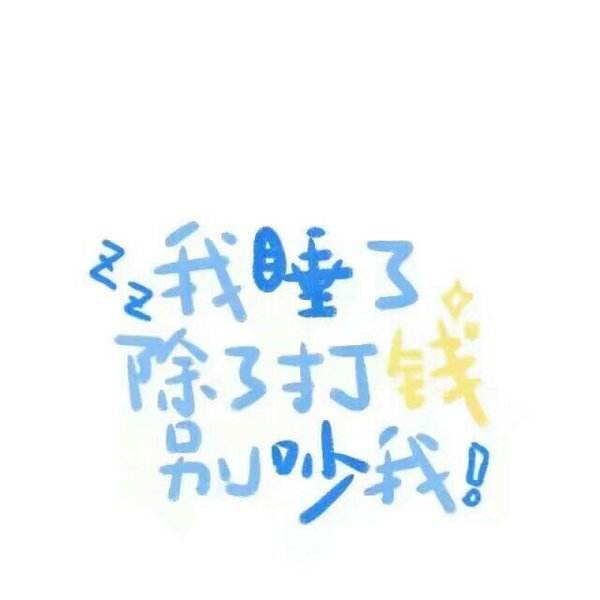 zz我睡了
除了打钱
别吵我!